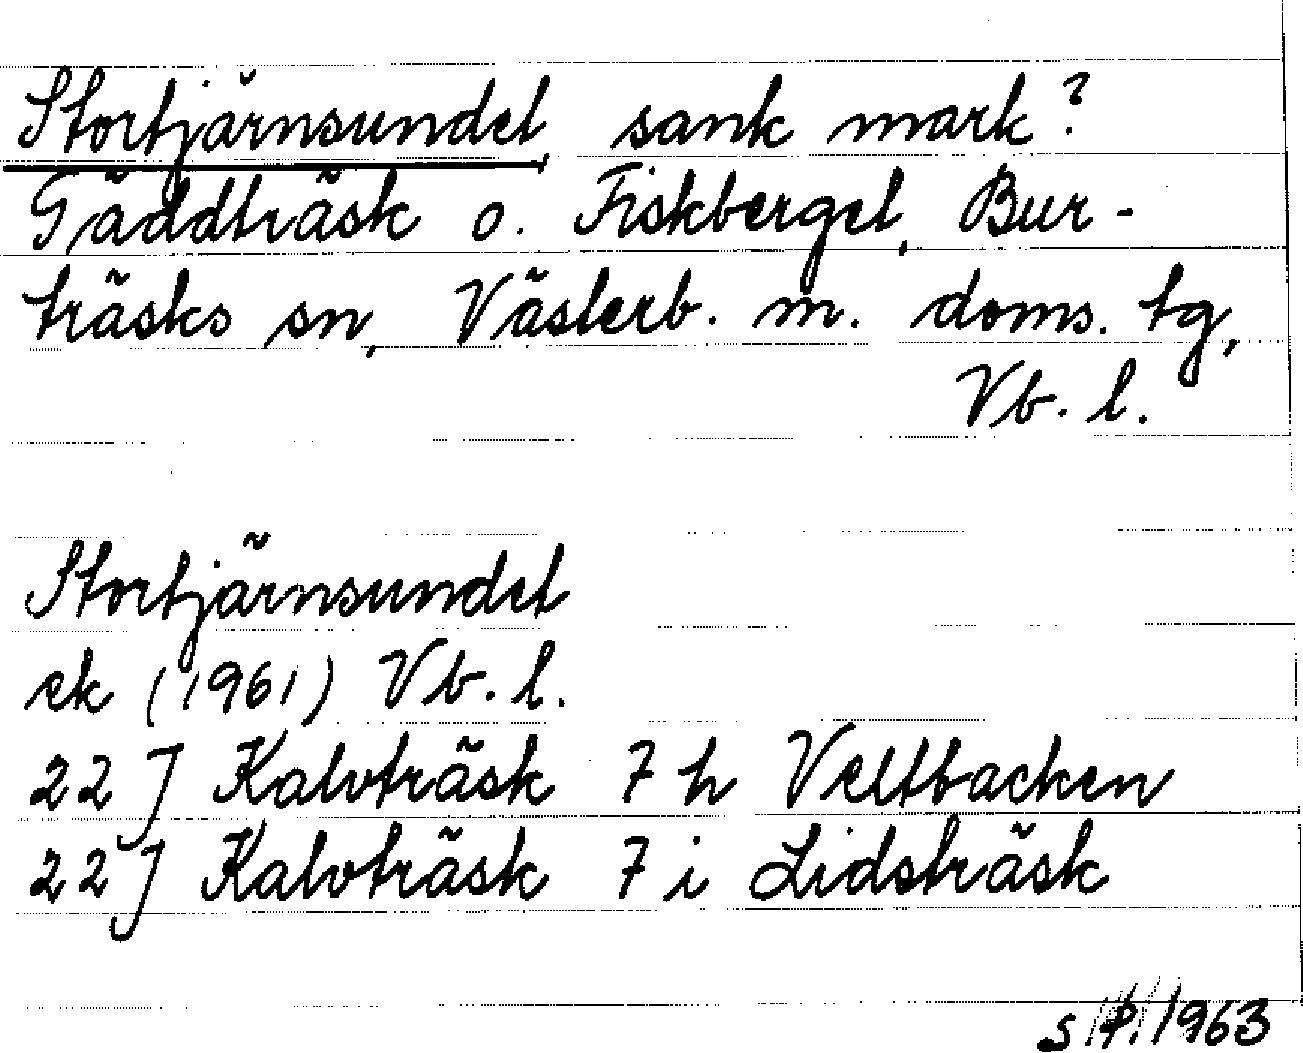 Stortjärnsundet, sank mark?
Gäddträsk o. Fiskberget, Bur-
träsks sn, Västerb. m. doms. tg,
Vb. l.
Stortjärnsundet
ek (1961) Vb. l.
22 J Kalvträsk 7 h Veltbacken
22 J Kalvträsk 7 i Lidsträsk
1963